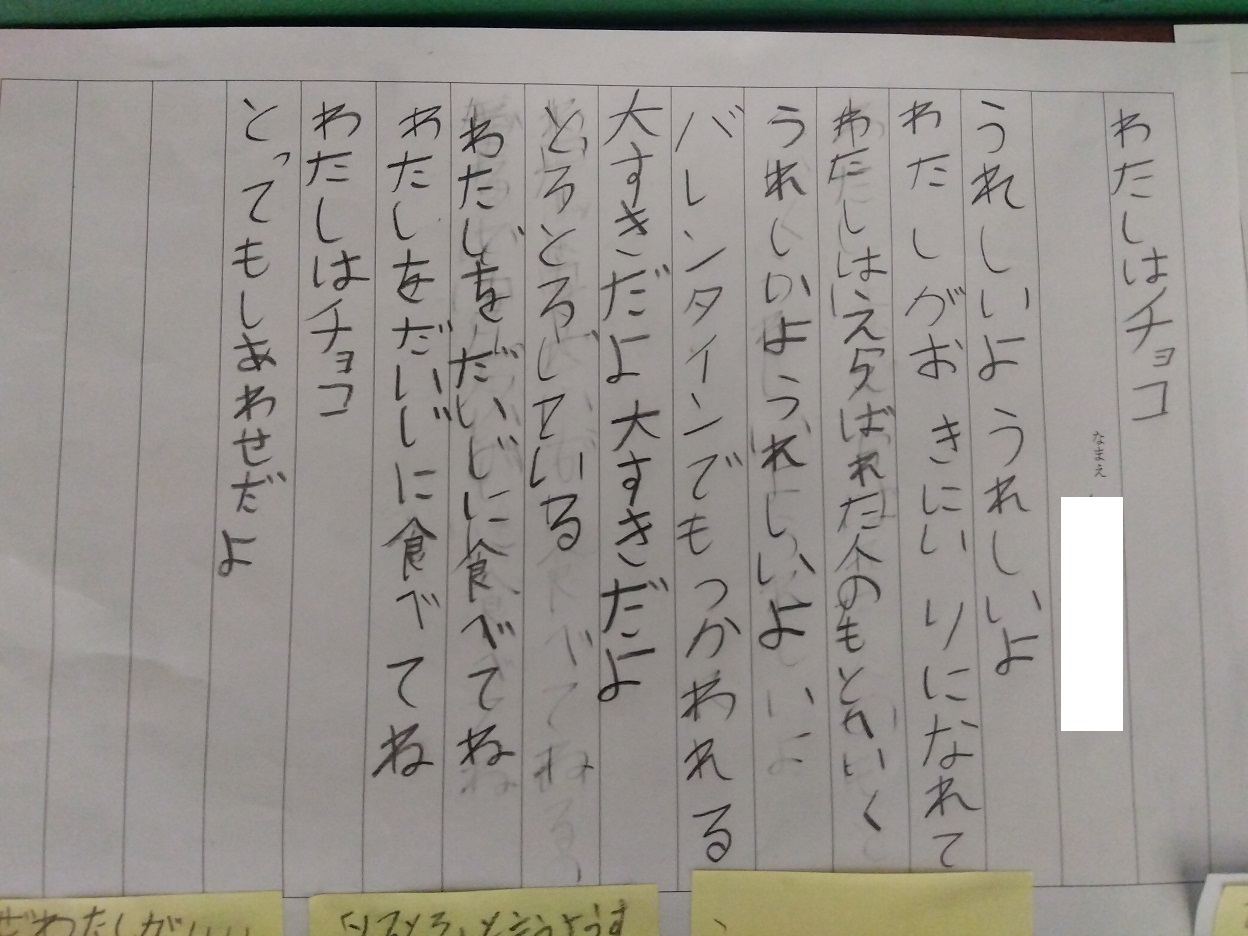 わたしはチョコ
なまえ
うれしいよ うれしいよ
わたしがおきにいりになれて
わたしはえらばれた人のもとへいく
うれしいよ うれしいよ
バレンタインでもつかわれる
大すきだよ 大すきだよ
とろとろしている
わたしをだいじに食べてね
わたしをだいじに食べてね
わたしはチョコ
とってもしあわせだよ